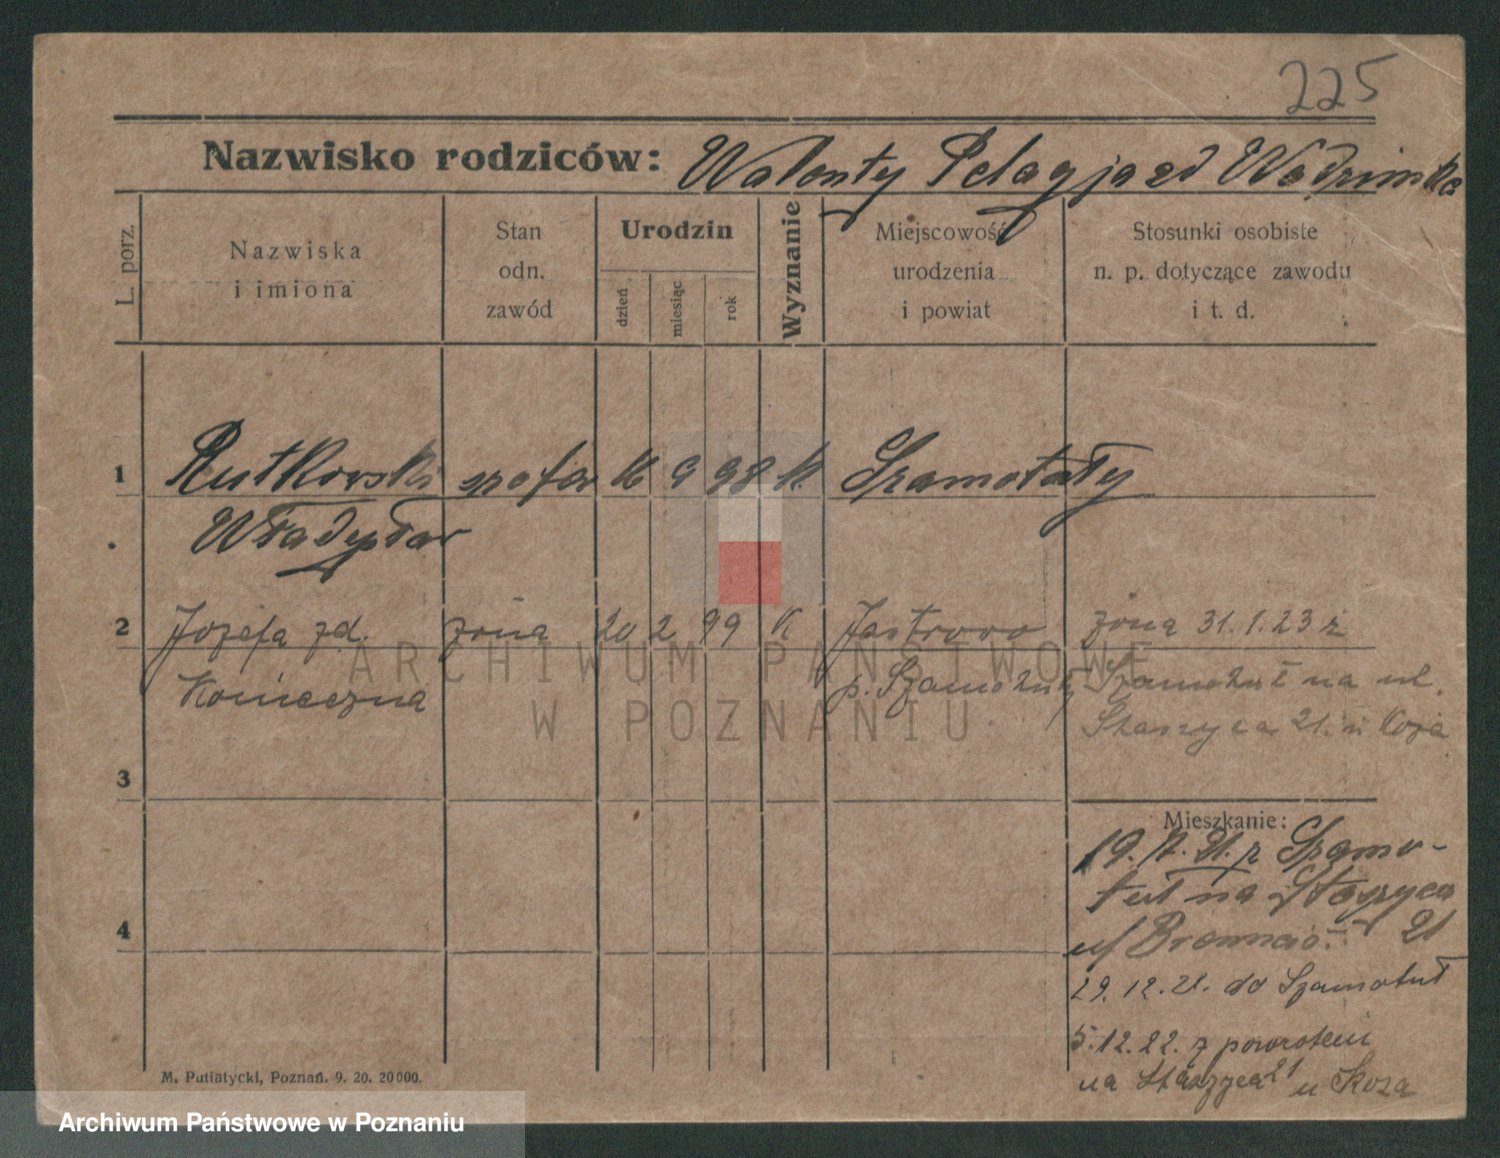 225
Nazwisko rodziców: Walenty Pelagja zd
L. porz.
Nazwiska
i imiona
Stan
odn.
zawód
Urodzin
dzień
miesiąc
rok
Wyznanie
Miejscowość
urodzenia
i powiat
Stosunki osobiste
n. p. dotyczące zawodu
i t. d.
1 Rutkowski szofer 16 9 98 k. Szamotuły
Władysław
2 Józefa zd. żona 20 2 99 K Jastrowo żona 31.1.23 z
Konieczna p. Szamotuły Szamotuł na ul.
Staszyca 21. u Koza
3
Mieszkanie:
19. 21. z Szamo-
tuł na Staszyca
21
4
29.12.21. do Szamotuł
5.12.22. z powrotem
na Staszyca 21 u Koza
M. Putiatycki, Poznań. 9. 20. 20000.
ARCHIWUM PAŃSTWOWE
W POZNANIU
Archiwum Państwowe w Poznaniu